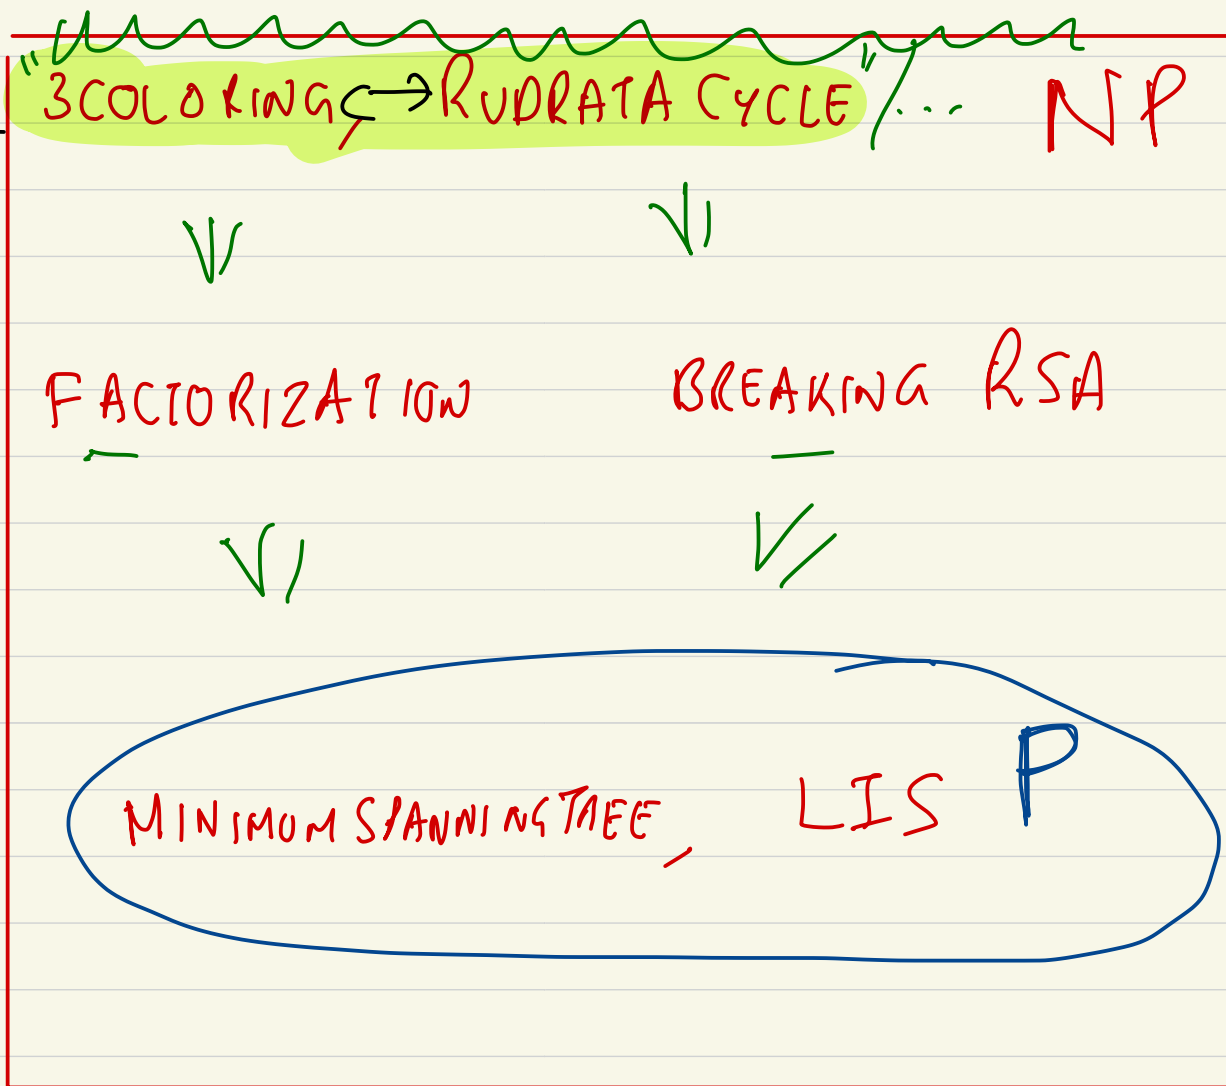 "3COLORING, ↔ RUDRATA CYCLE", ... NP
FACTORIZATION BREAKING RSA
P
MINIMUM SPANNING TREE, LIS